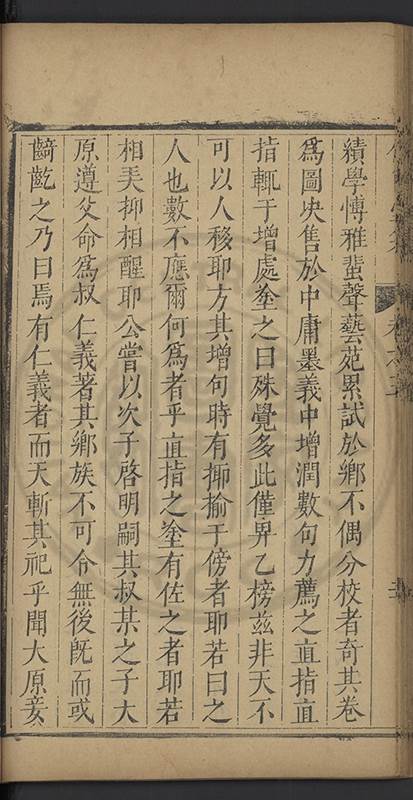 績學愽雅蜚聲藝苑累試於鄉不偶分校者奇其卷
爲圖决售於中庸墨義中增潤數句力薦之直指直
指輒于增處塗之曰殊覺多此僅畀乙榜茲非天不
可以人移耶方其增句時有揶揄于傍者耶若曰之
人也數不應爾何爲者乎直指之塗有佐之者耶若
相关抑相醒耶公嘗以次子啓明嗣其叔某之子大
原遵父命爲叔仁義著其鄉族不可令無後旣而或
齮齕之乃曰焉有仁義者而天斬其祀乎聞大原妾